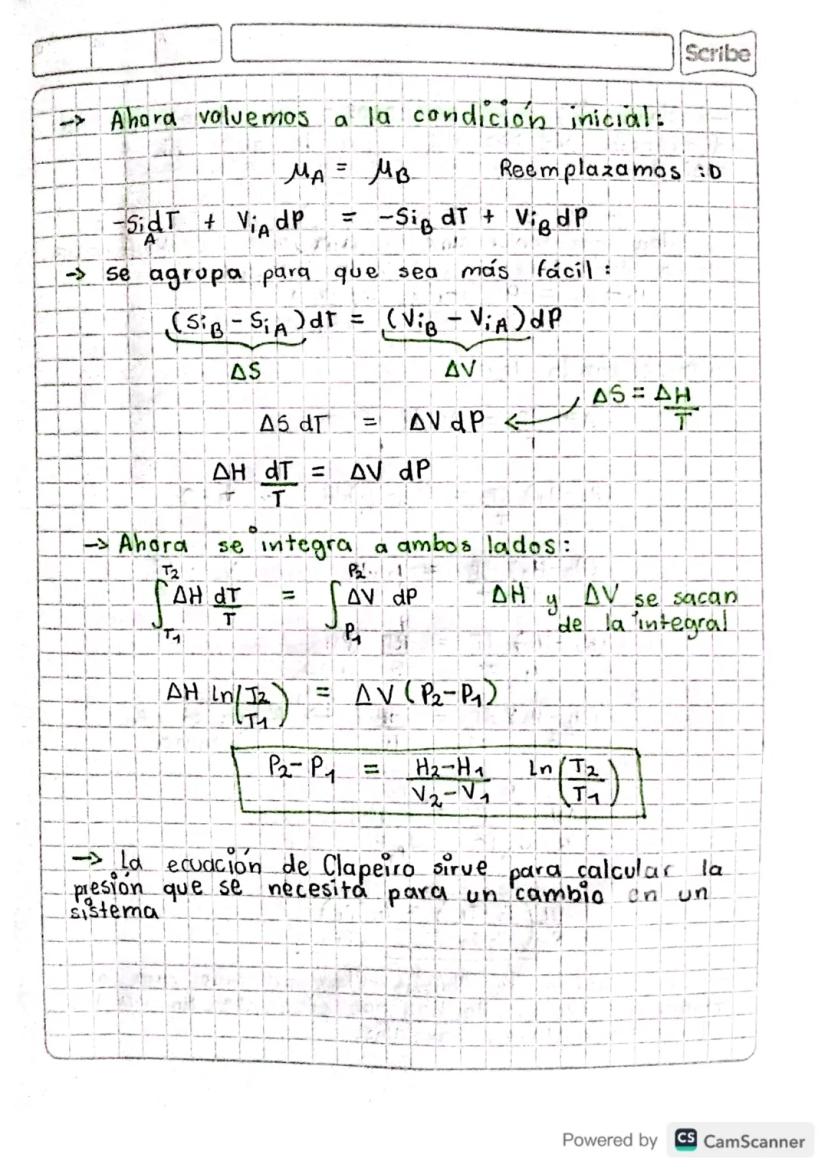 Scribe
→ Ahora volvemos a la condición inicial:
μA = μB Reemplazamos :D
-SiA dT + ViA dP = -SiB dT + ViB dP
→ se agrupa para que sea más fácil:
(SiB - SiA)dT = (ViB - ViA)dP
ΔS ΔV
ΔS dT = ΔV dP ← ΔS = ΔH/T
ΔH dT/T = ΔV dP
→ Ahora se integra a ambos lados:
∫T1T2 ΔH dT/T = ∫P1P2 ΔV dP ΔH y ΔV se sacan
de la integral
ΔH ln(T2/T1) = ΔV(P2-P1)
P2-P1 = H2-H1/V2-V1 ln(T2/T1)
→ La ecuación de Clapeiro sirve para calcular la
presión que se necesita para un cambio en un
sistema
Powered by CS CamScanner